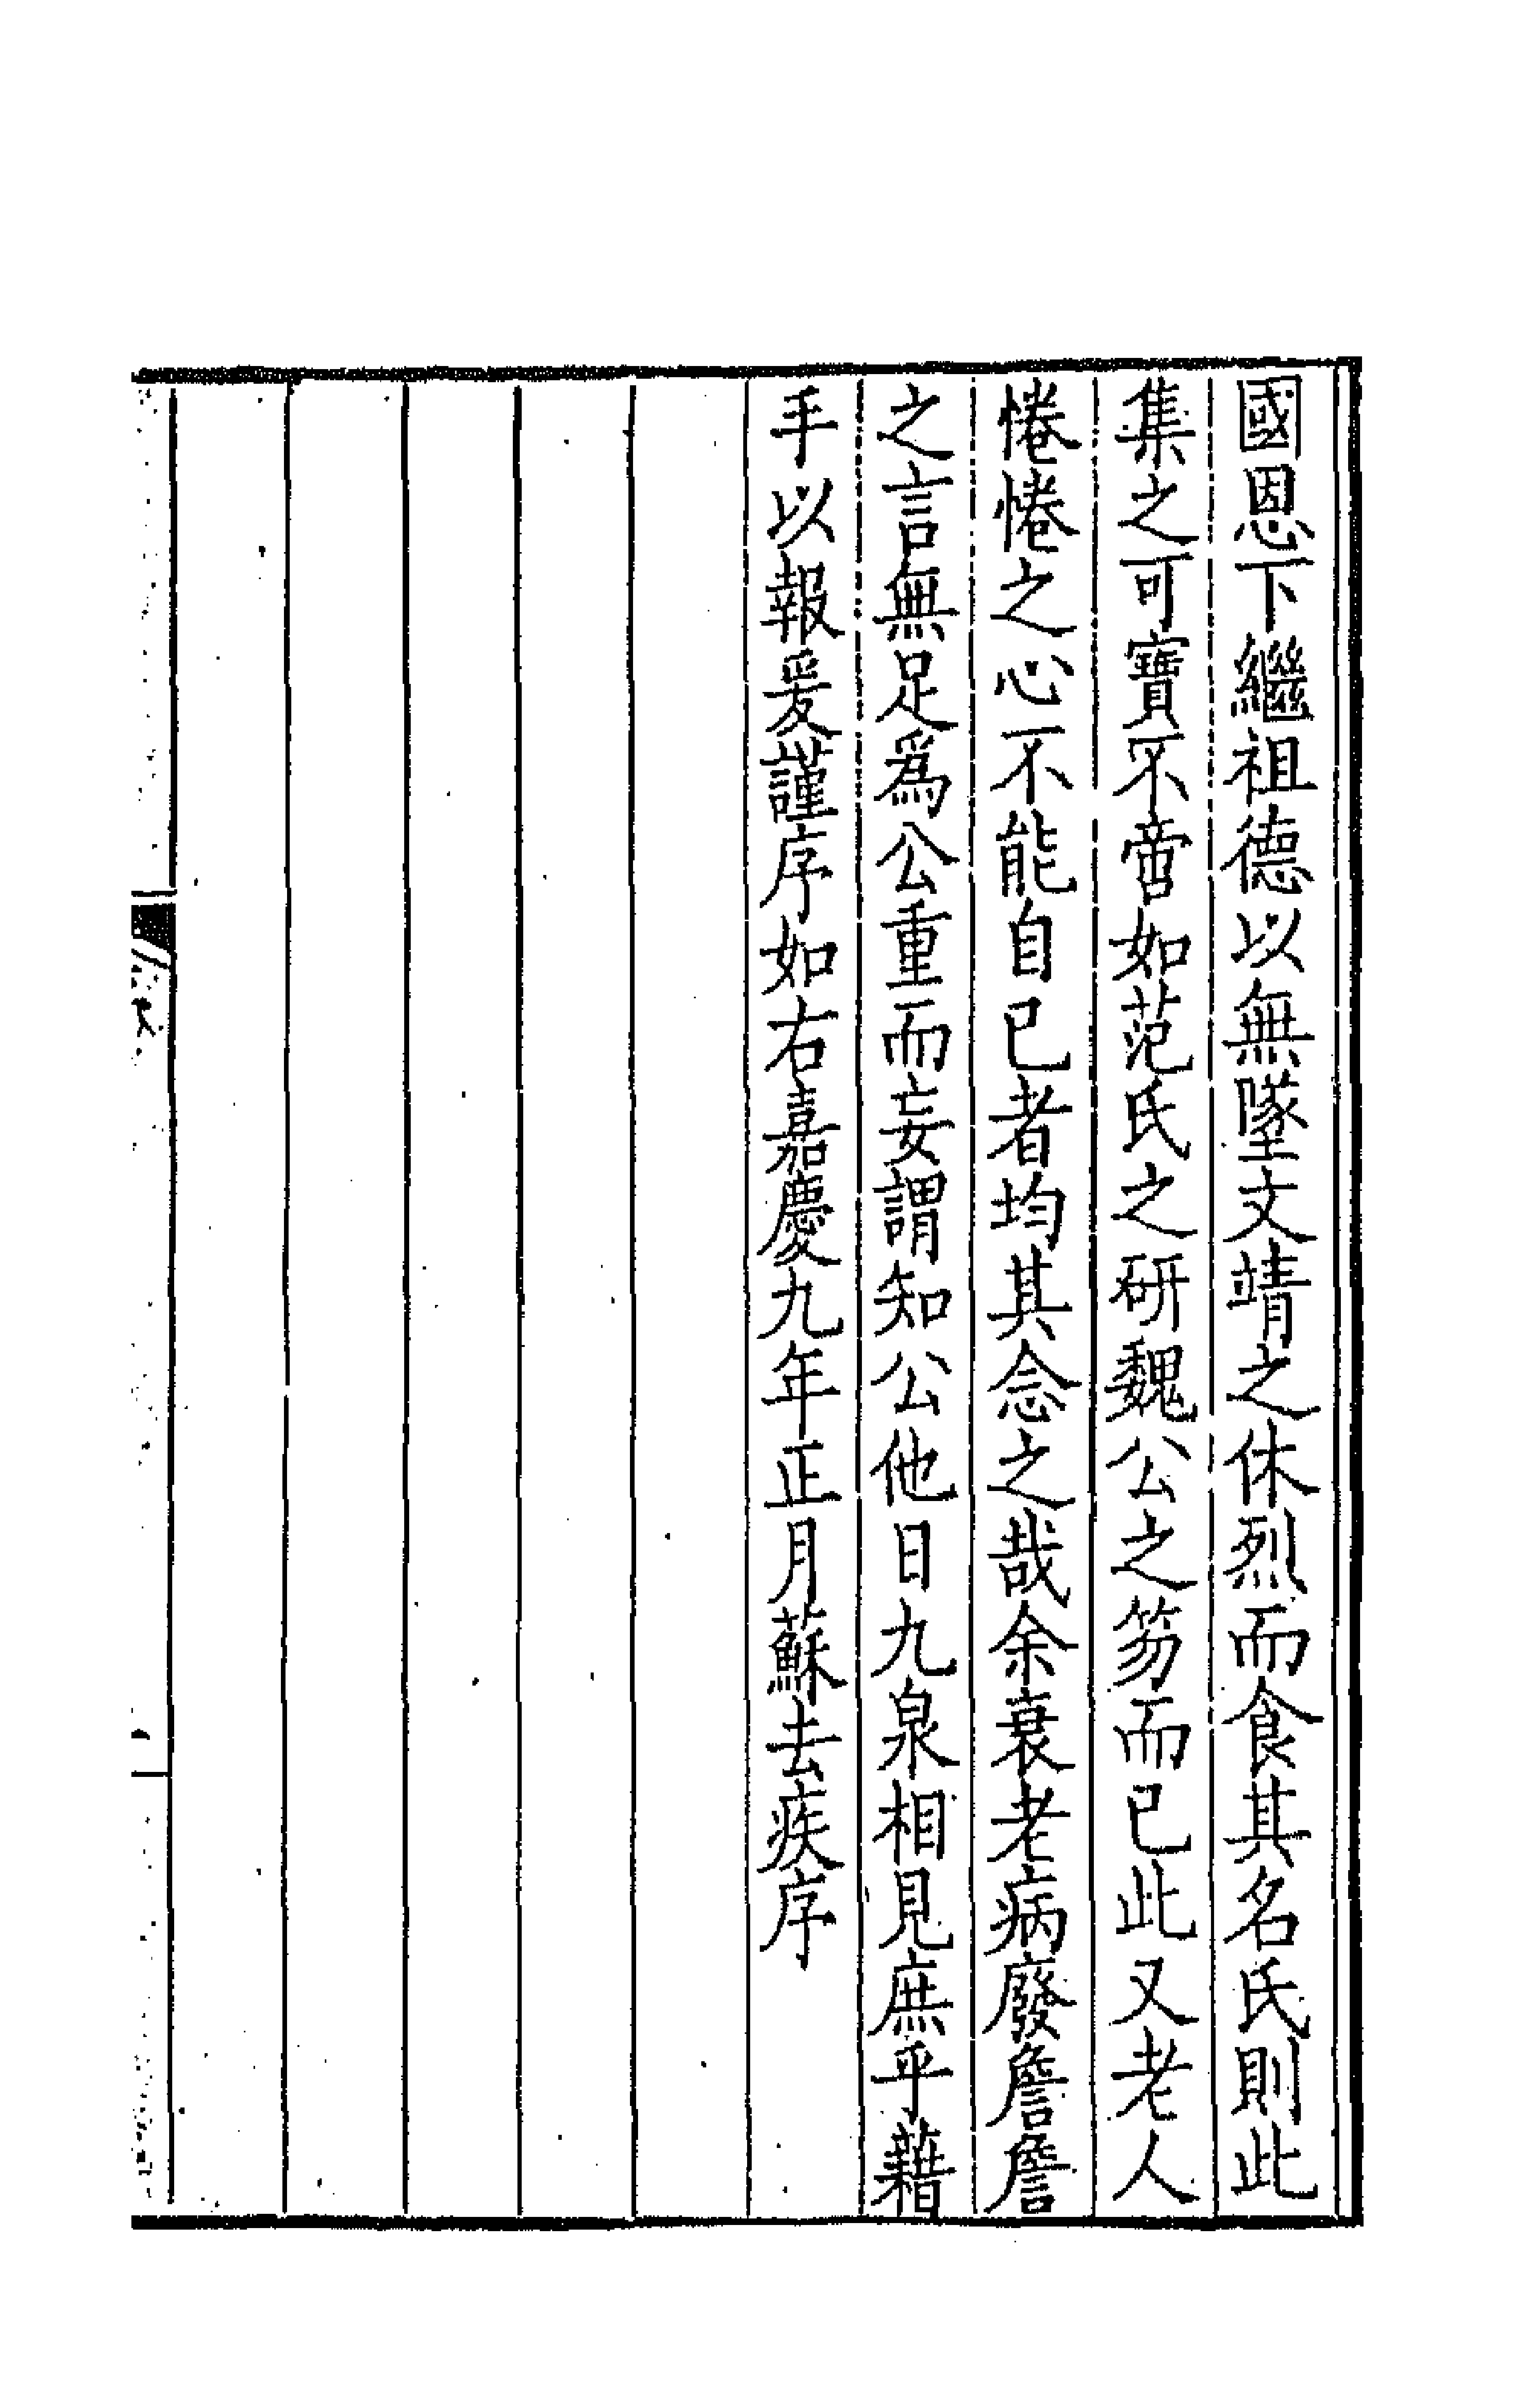 國恩下繼祖德以無墜文靖之休烈而食其名氏則此
集之可寶不啻如范氏之研魏公之笏而已此又老人
惓惓之心不能自已者均其念之哉余衰老病廢詹詹
之言無足為公重而妄謂知公他日九泉相見庶乎藉
手以報爰謹序如右嘉慶九年正月蘇去疾序